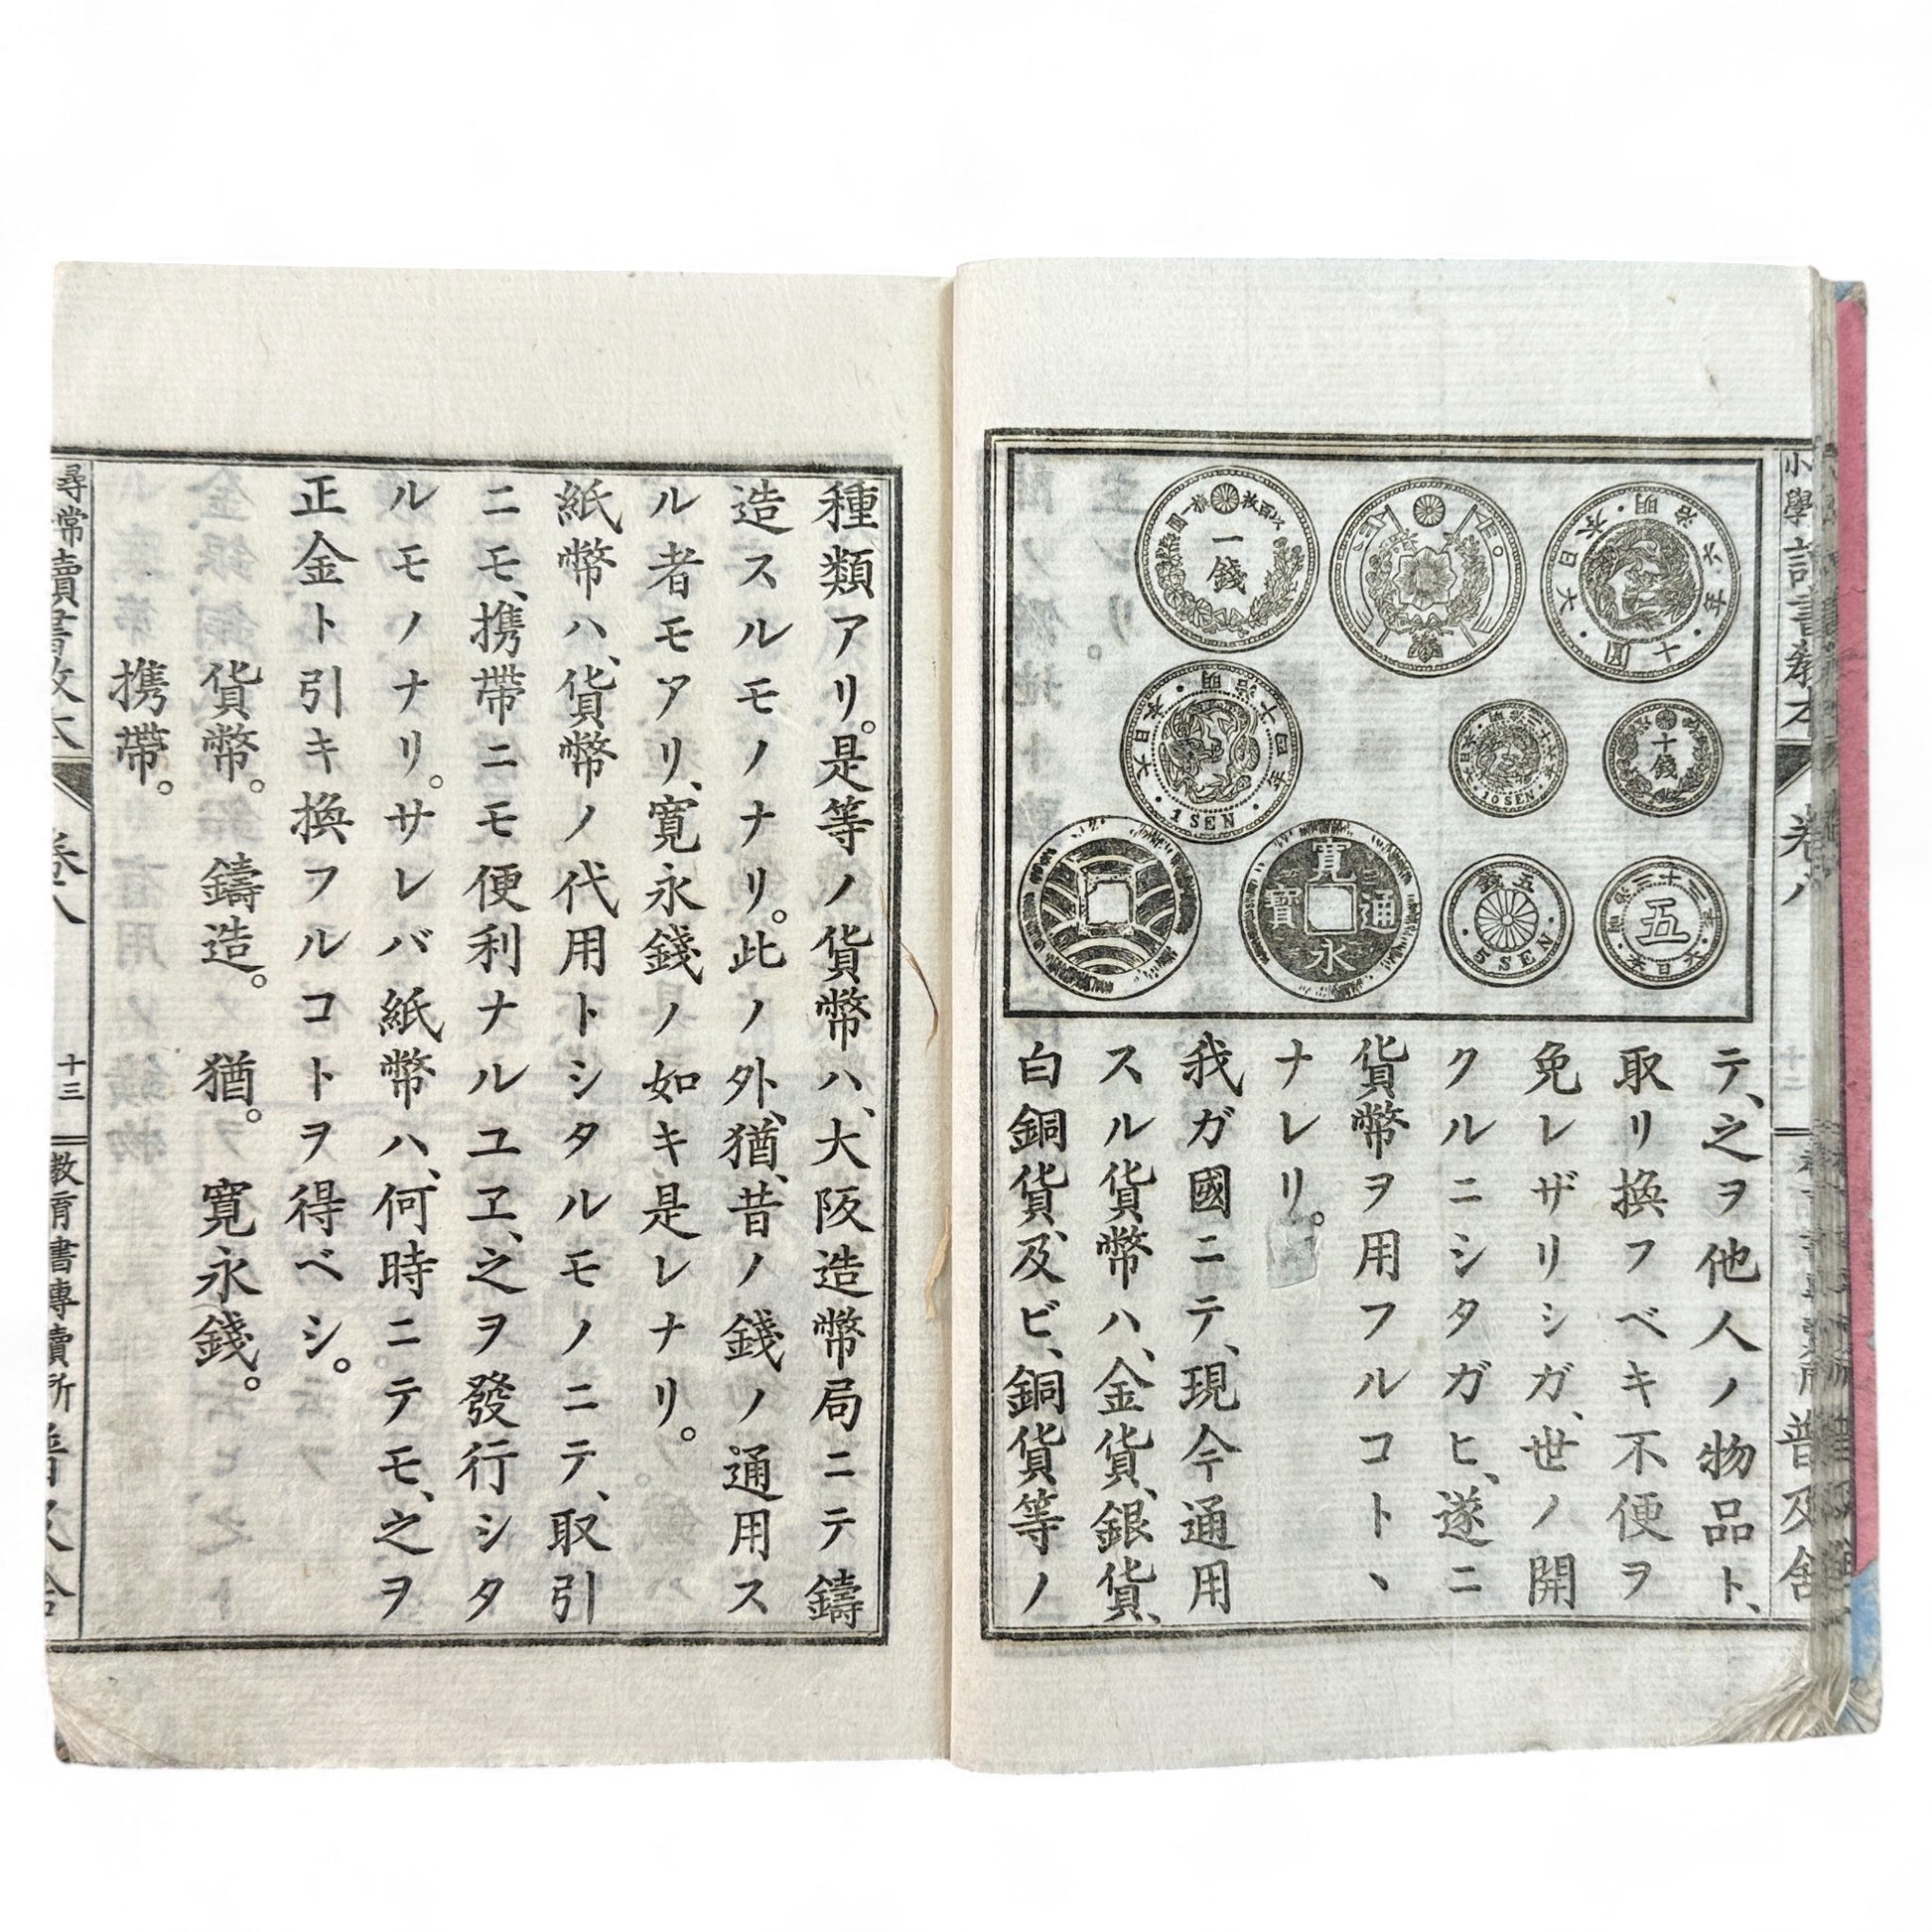 小學讀書教本
卷八
十二
普及舍
一錢
大日本
明治六年
十圓
十錢
10 SEN
大日本
明治十四年
1 SEN
五錢
5 SEN
五
大日本
寛永通寳
テ、之ヲ他人ノ物品ト、
取リ換フベキ不便ヲ
免レザリシガ、世ノ開
クルニシタガヒ、遂ニ
貨幣ヲ用フルコトヽ
ナレリ。
我ガ國ニテ、現今通用
スル貨幣ハ、金貨、銀貨、
白銅貨、及ビ、銅貨等ノ
種類アリ。是等ノ貨幣ハ、大阪造幣局ニテ鑄
造スルモノナリ。此ノ外、猶、昔ノ錢ノ通用ス
ル者モアリ、寛永錢ノ如キ是レナリ。
紙幣ハ、貨幣ノ代用トシタルモノニテ、取引
ニモ、携帶ニモ便利ナルユヱ、之ヲ發行シタ
ルモノナリ。サレバ紙幣ハ、何時ニテモ、之ヲ
正金ト引キ換フルコトヲ得ベシ。
貨幣。鑄造。猶。寛永錢。
携帶。
尋常讀書教本
卷八
十三
教育書專賣所
普及舍